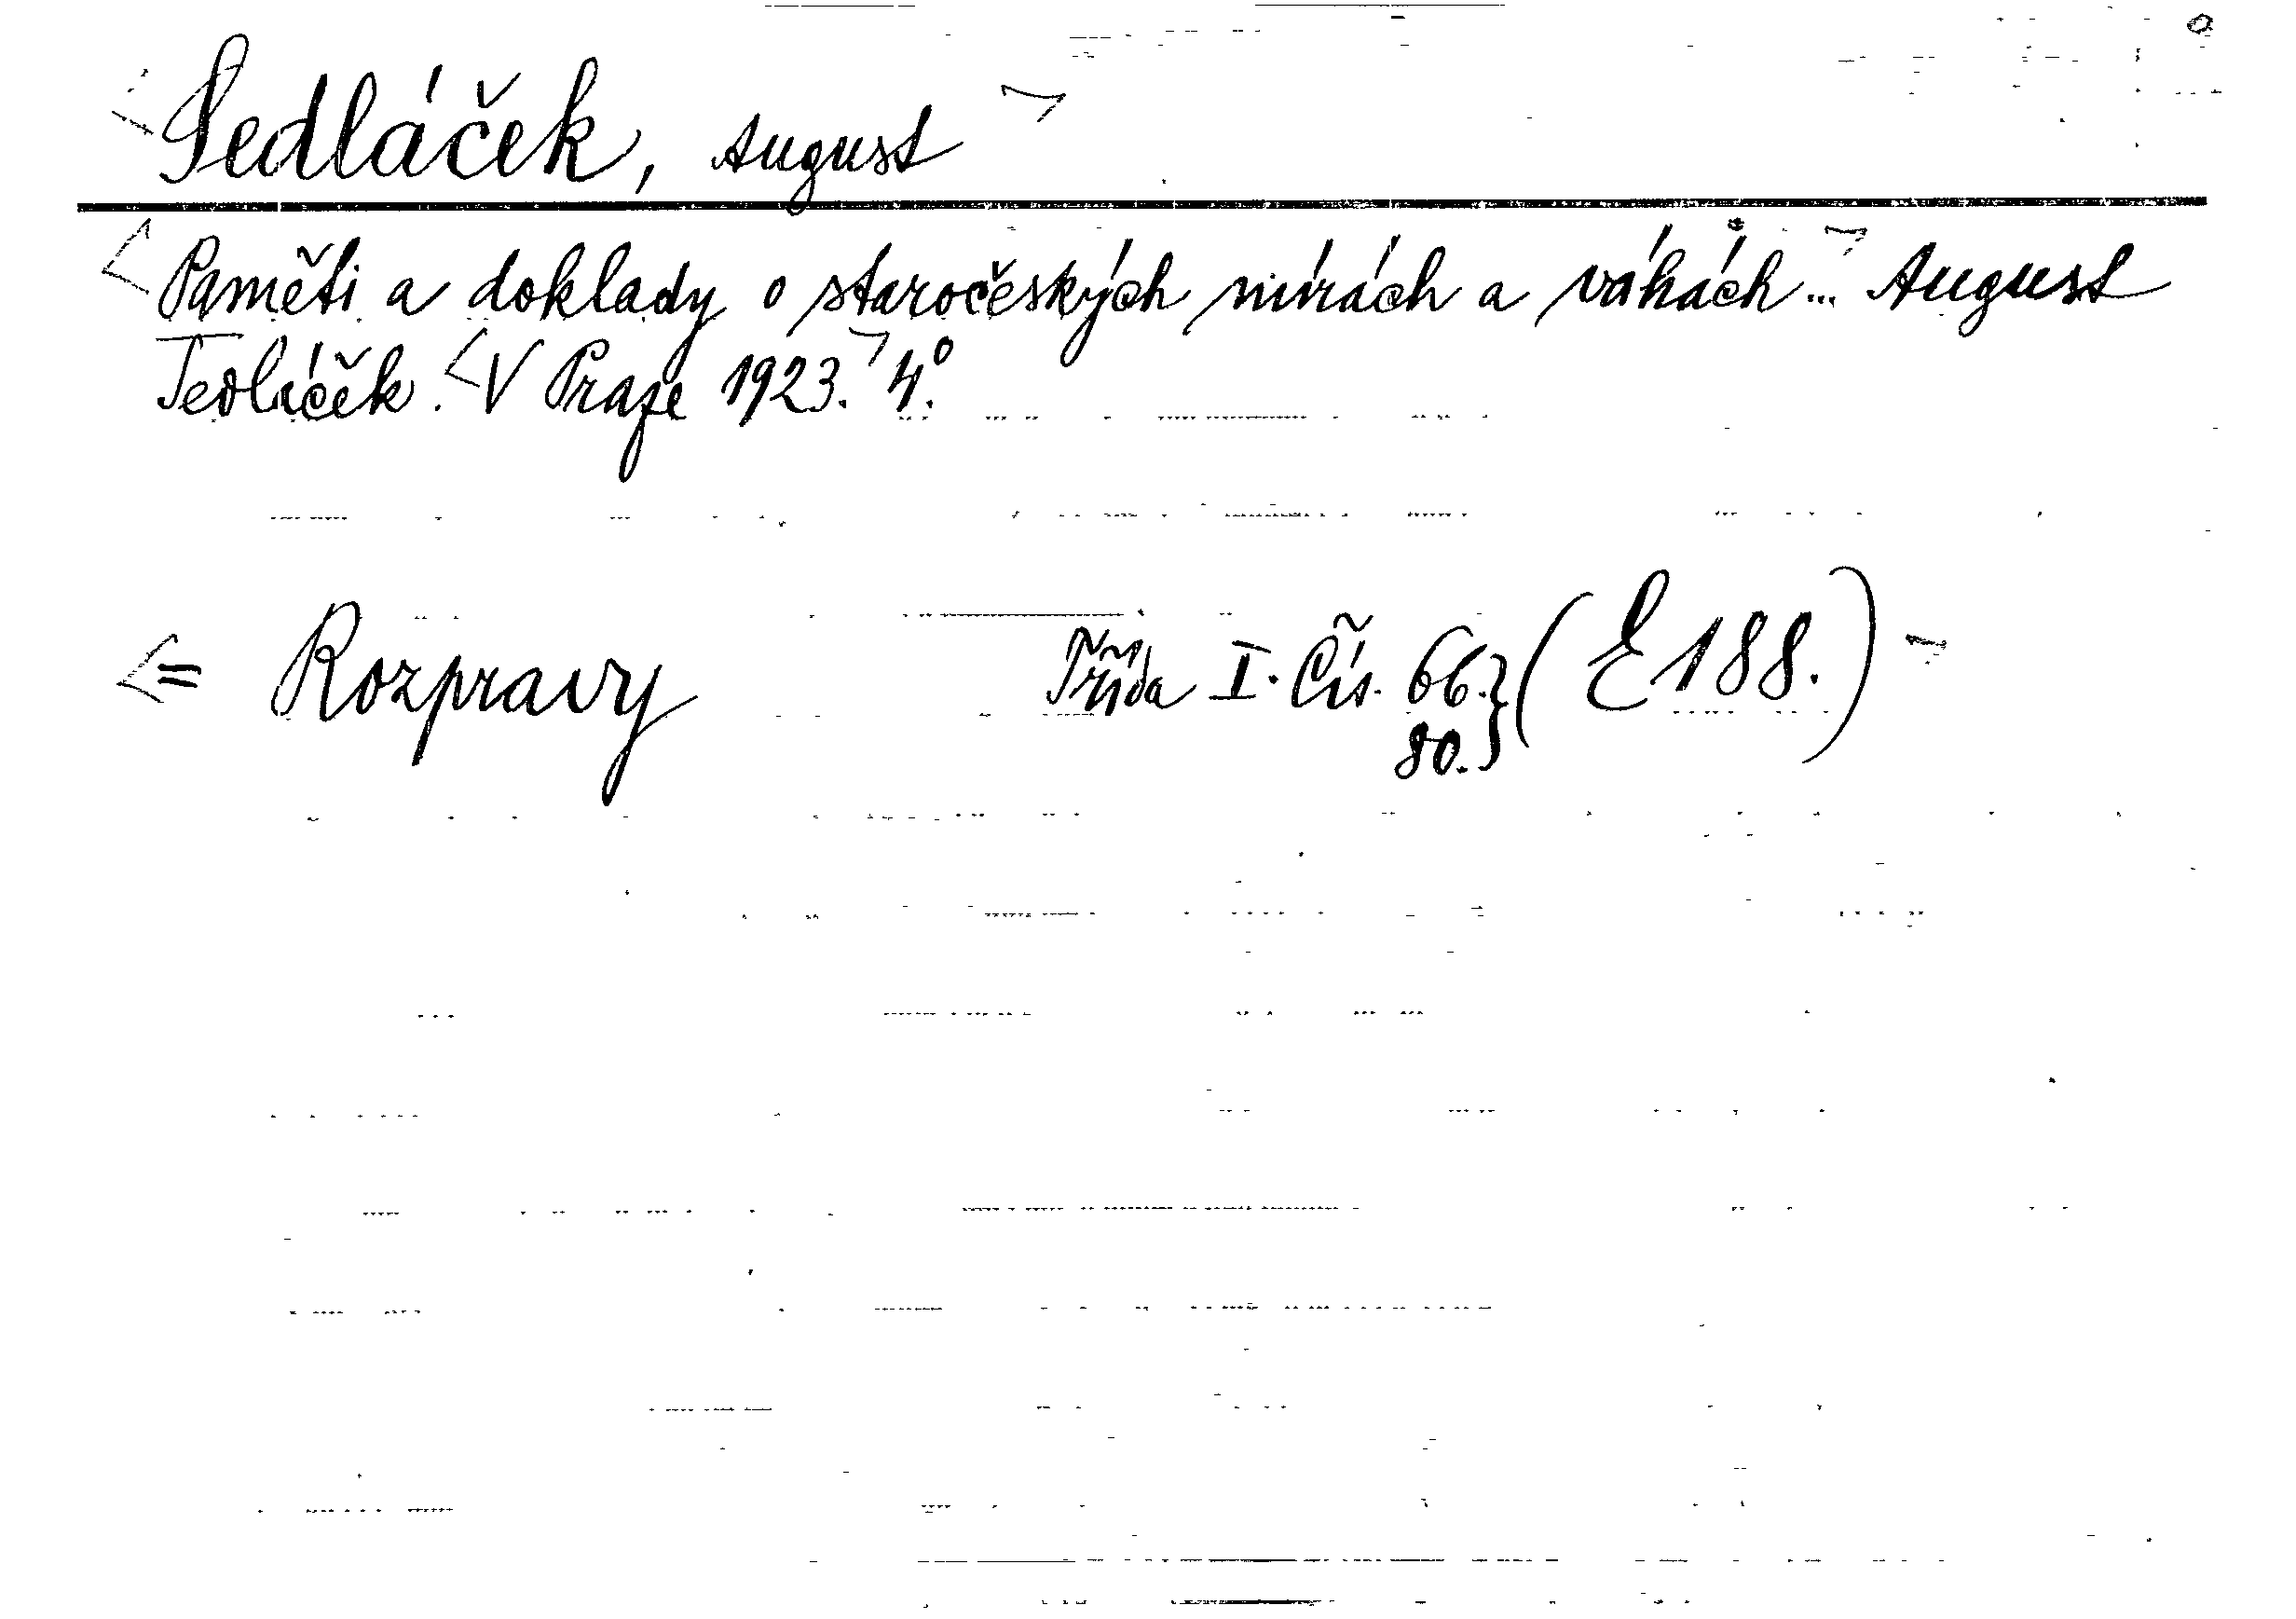 Sedláček, August
Paměti a doklady o staročeských mírách a váhách... August
Sedláček. V Praze 1923. 4°.
= Rozpravy Třída I. Čís. 66. } (E 188.)
80.